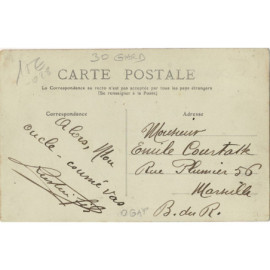 30 GARD
CARTE POSTALE
La Correspondance au recto n'est pas acceptée par tous les pays étrangers
(Se renseigner à la Poste)
Correspondance
Adresse
Alors, Mon
oncle - coumé vas
Monsieur
Emile Courtalk
Rue Plumier 56
Marseille
B. du R.